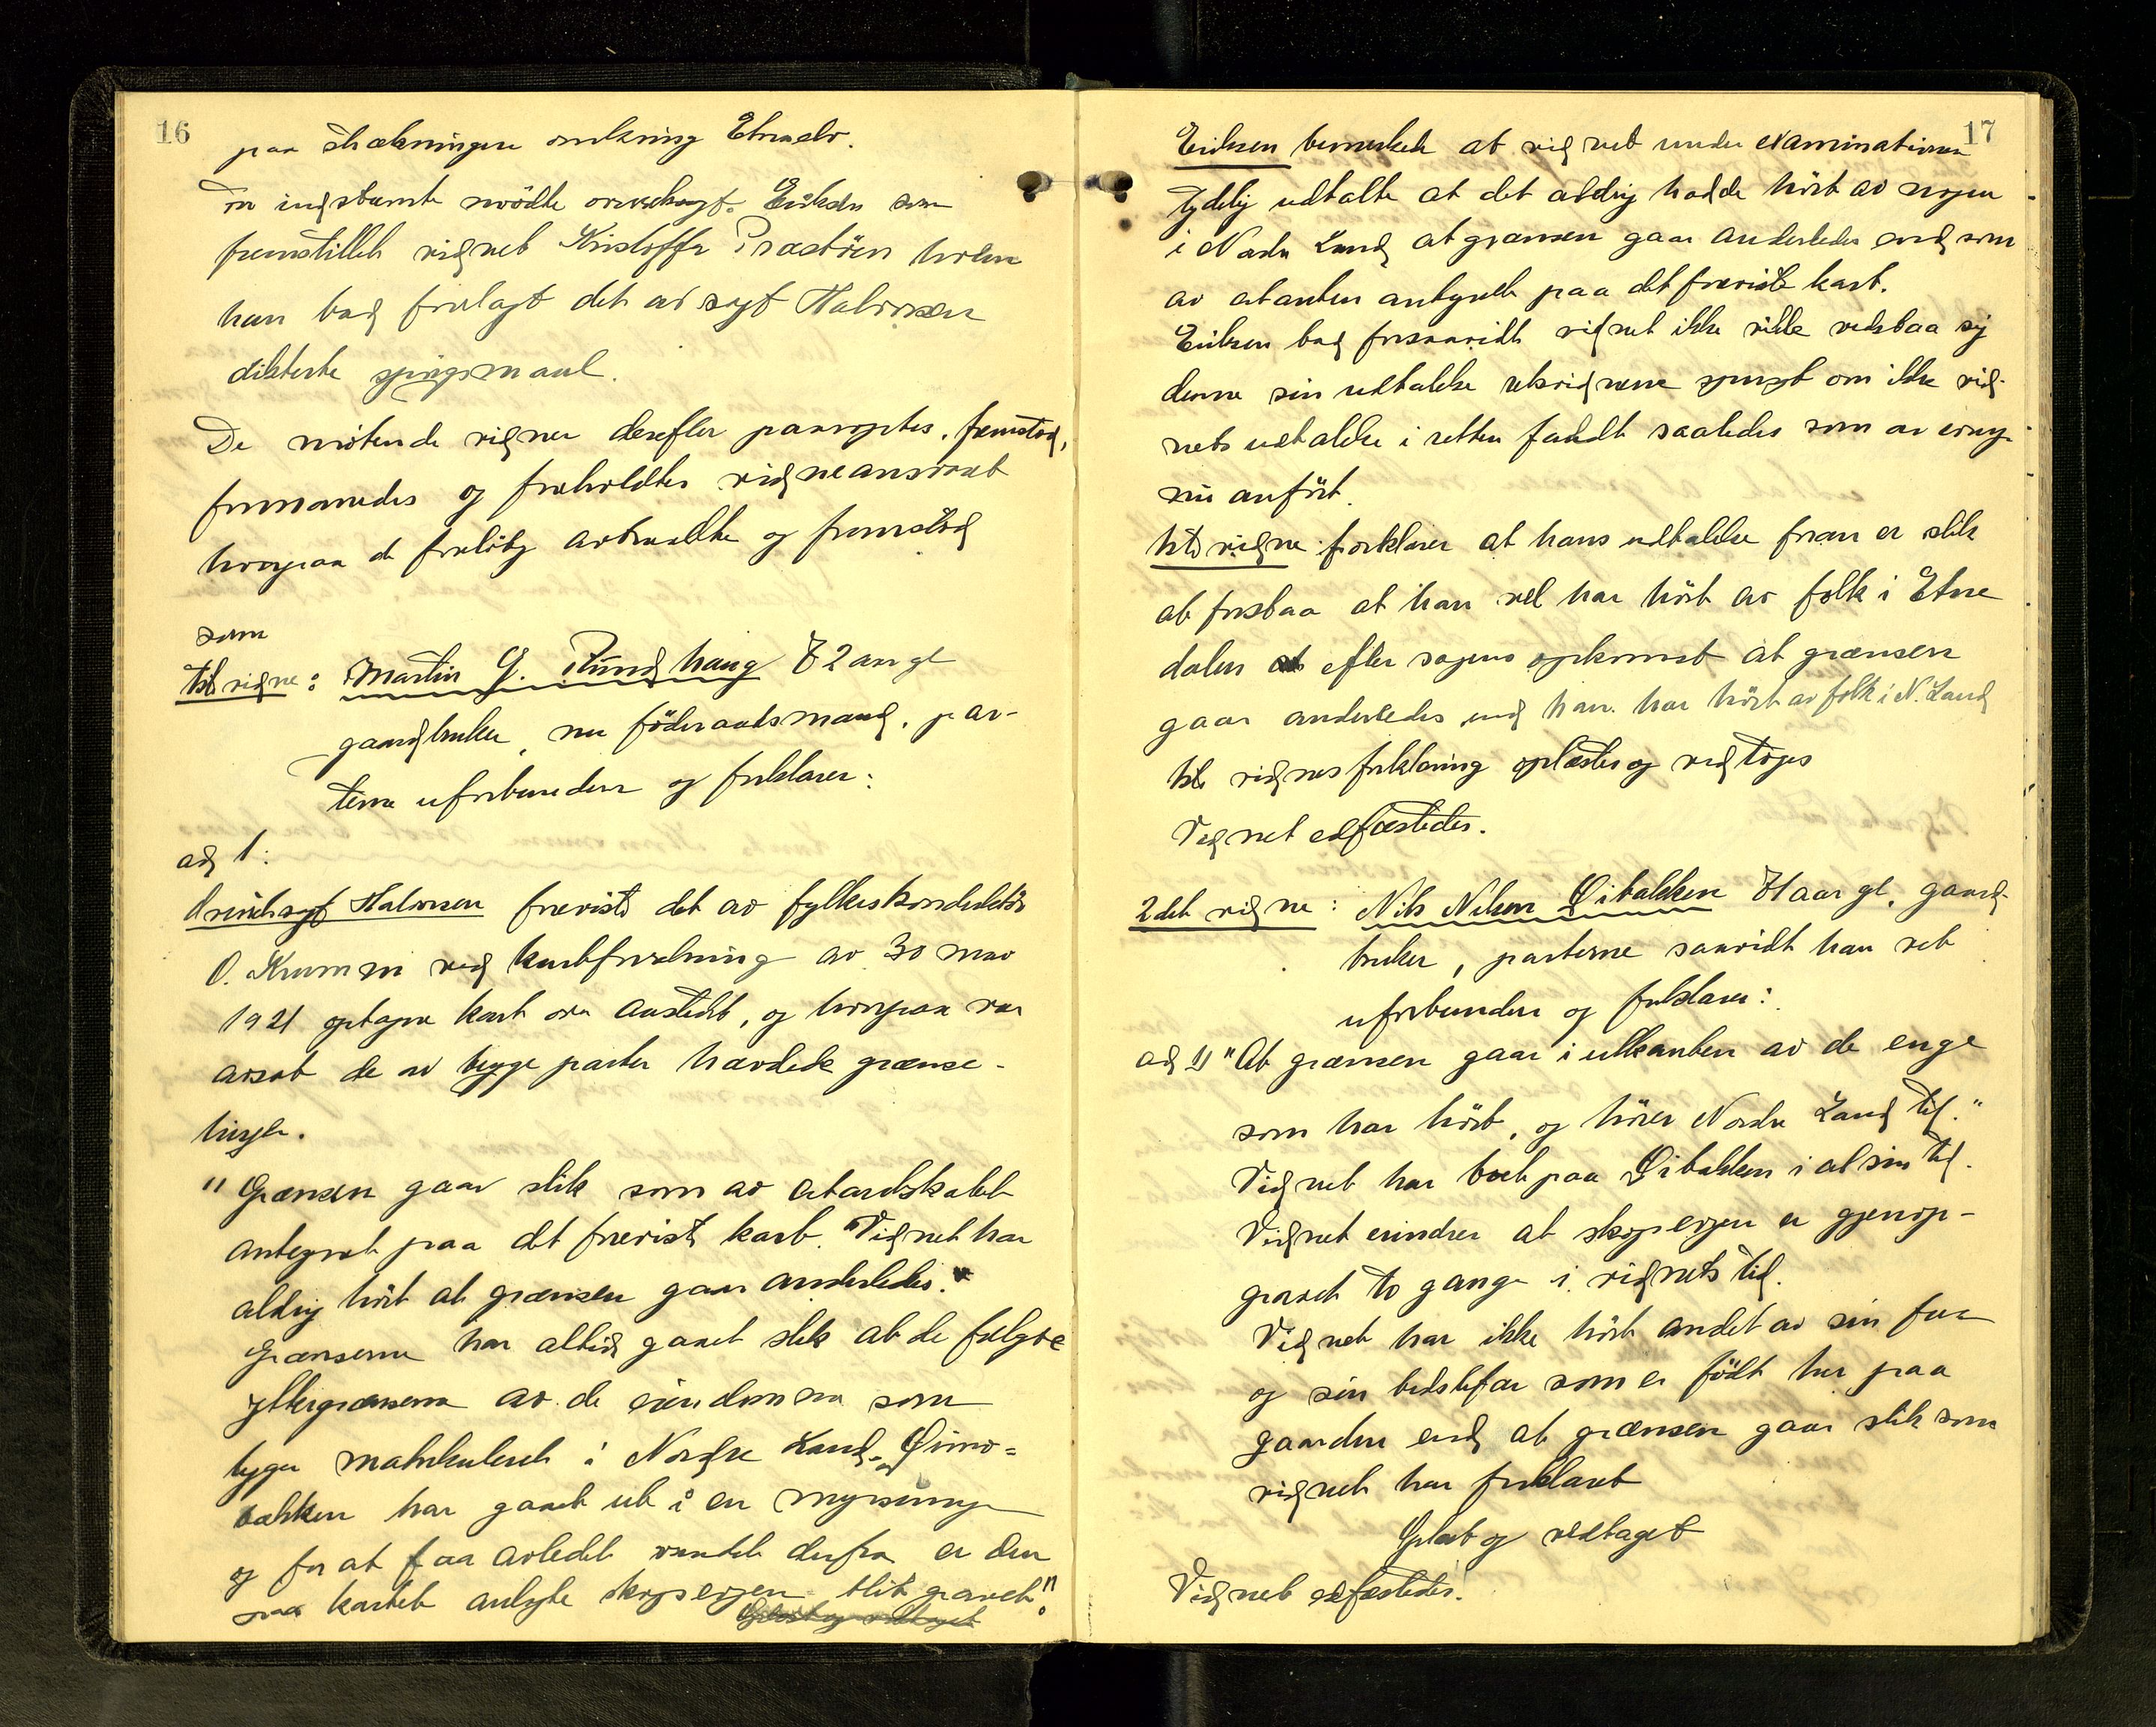 16
paa strækningen omkring Etnaelv.
For indstevnte mødte overretssagf. Eriksen som
fremstillet vidnet Kristoffer Præstøien hvem
han bad forelagt det av sagf Halvorsen
dikterte spørgsmaal.
De møtende vidner derefter paaroptes, fremstod,
formanedes og foreholdtes vidneansvaret
hvorpaa de foreløbig avtraadte og fremstod
som
1ste vidne: Martin G. Rundhaug 72 aar gl
gaardbruker, nu föderaadsmand, par-
terne uforbunden og forklarer:
ad 1:
Overretssagf Halvorsen foreviste det av fylkeskonduktör
O. Krummi ved kartforretning av 30 mai
1921 optagne kart over aastedet, og hvorpaa var
avsat de av begge parter hævdede grænse-
linjer.
"Grænsen gaar slik som av
antegnet paa det foreviste kart. Vidnet har
aldrig hört at grænsen gaar anderledes.
Grænserne har altid gaaet slik at de fulgte
yttergrænserne av de eiendommer som
ligger matrikuleret i Nordre Land.
bækken har gaaet ut i en
og for at faa avledet vandet derfra er den
paa kartet anlagte blit gravet."
Oplæst og vedtaget
17
Eriksen bemerket at vidnet under examinationen
tydelig udtalte at det aldrig hadde hört av nogen
i Nordre Land at grænsen gaar anderledes end som
av antegnet paa det foreviste kart.
Eriksen bad forsaavidt vidnet ikke vilde vedstaa sig
denne sin udtalelse retsvidnerne spurgt om ikke vid-
nets udtalelse i retten faldt saaledes som av
nu anfört.
1ste vidne forklarer at hans udtalelse foran er slik
at forstaa at han vel har hört av folk i Etne
dalen at efter sagens opkomst at grænsen
gaar anderledes end han har hört av folk i N. Land
1ste vidnes forklaring oplæstes og vedtoges
Vidnet edfæstedes.
2det vidne: Nils Nilsen Öibakken 71 aar gl, gaard-
bruker, parterne saavidt han vet
uforbunden og forklarer:
ad 1) "At grænsen gaar i utkanten av de enge
som har hört, og hörer Nordre Land til."
Vidnet har boet paa Öibakken i al sin tid.
Vidnet erindrer at er gjenop-
gravet to gange i vidnets tid.
Vidnet har ikke hört andet av sin far
og sin bedstefar som er födt her paa
gaarden end at grænsen gaar slik som
vidnet har forklaret
Oplæst og vedtaget
Vidnet edfæstedes.